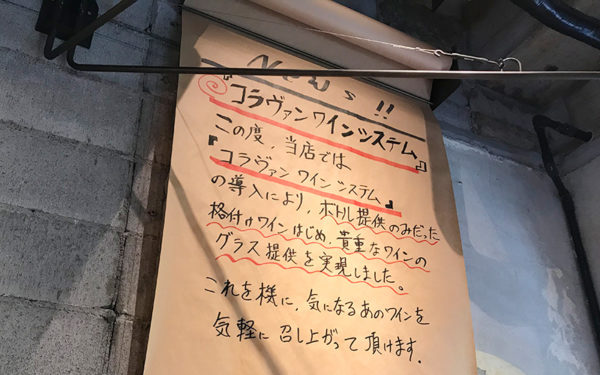 News!!
『コラヴァンワインシステム』
この度、当店では
『コラヴァンワインシステム』
の導入により、ボトル提供のみだった
格付けワインはじめ、貴重なワインの
グラス提供を実現しました。
これを機に、気になるあのワインを
気軽に召し上がって頂けます。